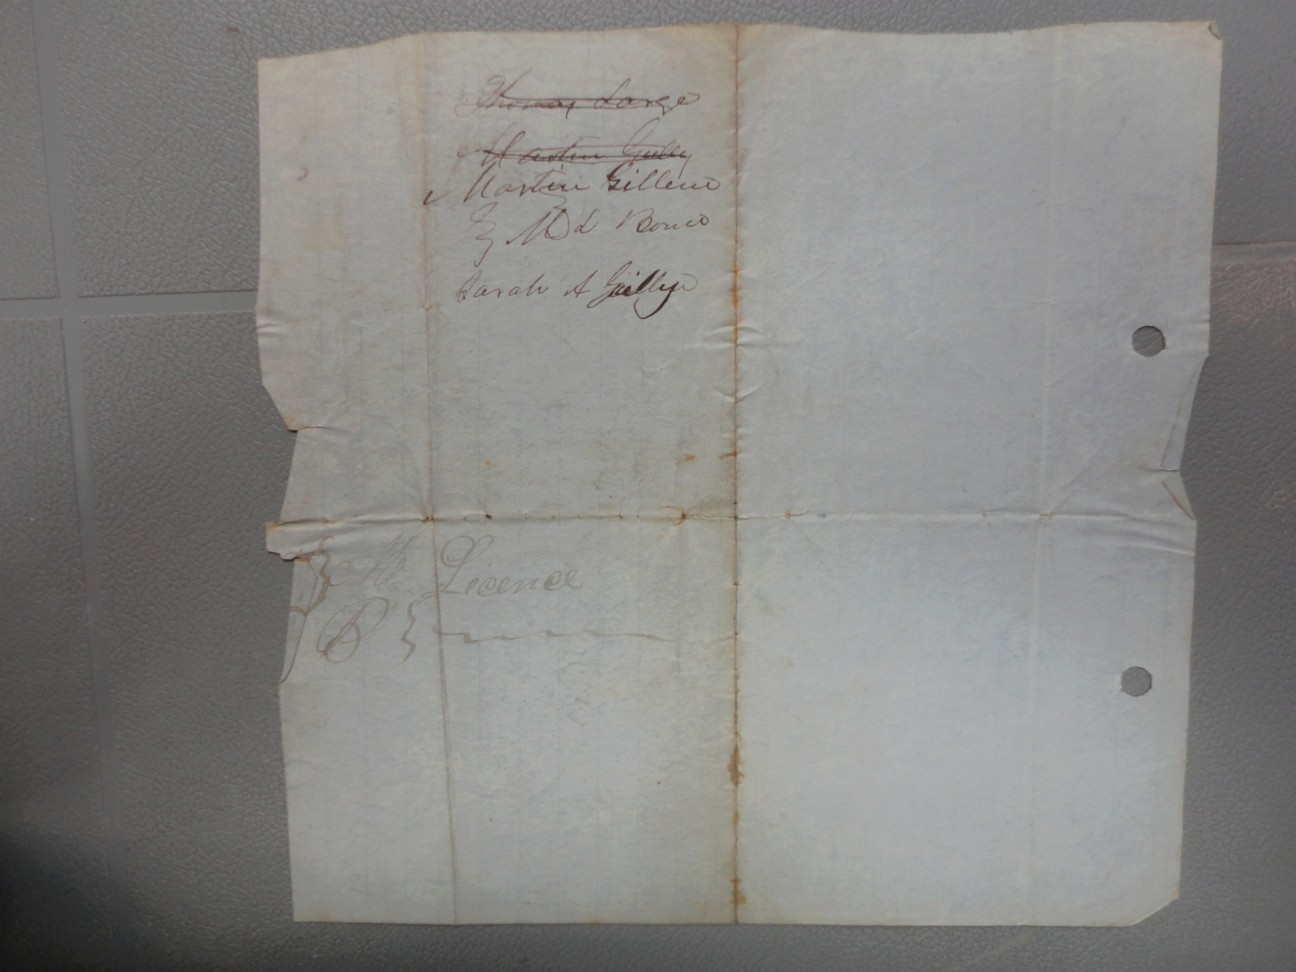 Thomas Large
Martin Gully
Martin Gillem
& M L
Sarah A Gully
M Licence
B